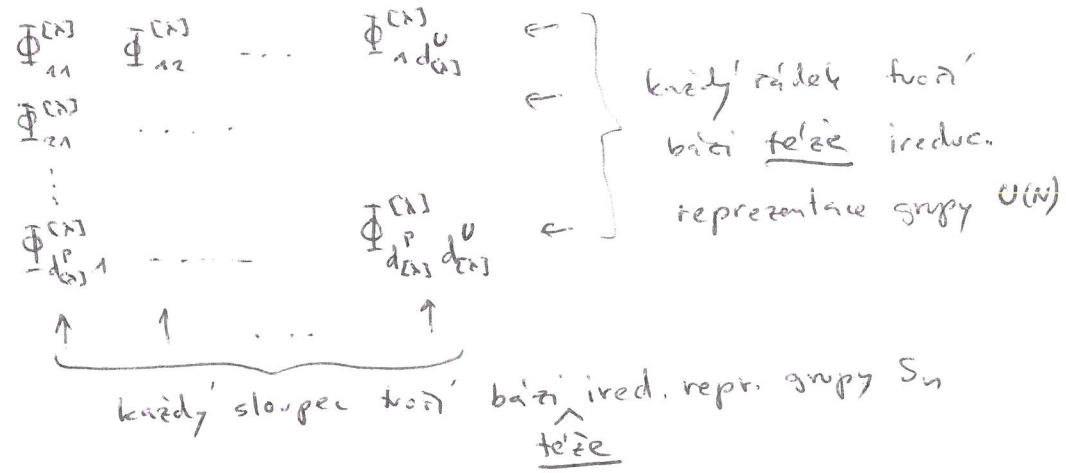 Φ₁₁^[λ] Φ₁₂^[λ] .... Φ_{1 d^U_[λ]}^[λ] ←
Φ₂₁^[λ] ..... ←
⋮
Φ_{d^P_[λ] 1}^[λ] ..... Φ_{d^P_[λ] d^U_[λ]}^[λ] ←
každý řádek tvoří
bázi téže ireduc.
reprezentace grupy U(N)
↑ ↑ .... ↑
každý sloupec tvoří bázi ired. repr. grupy Sₙ
téže